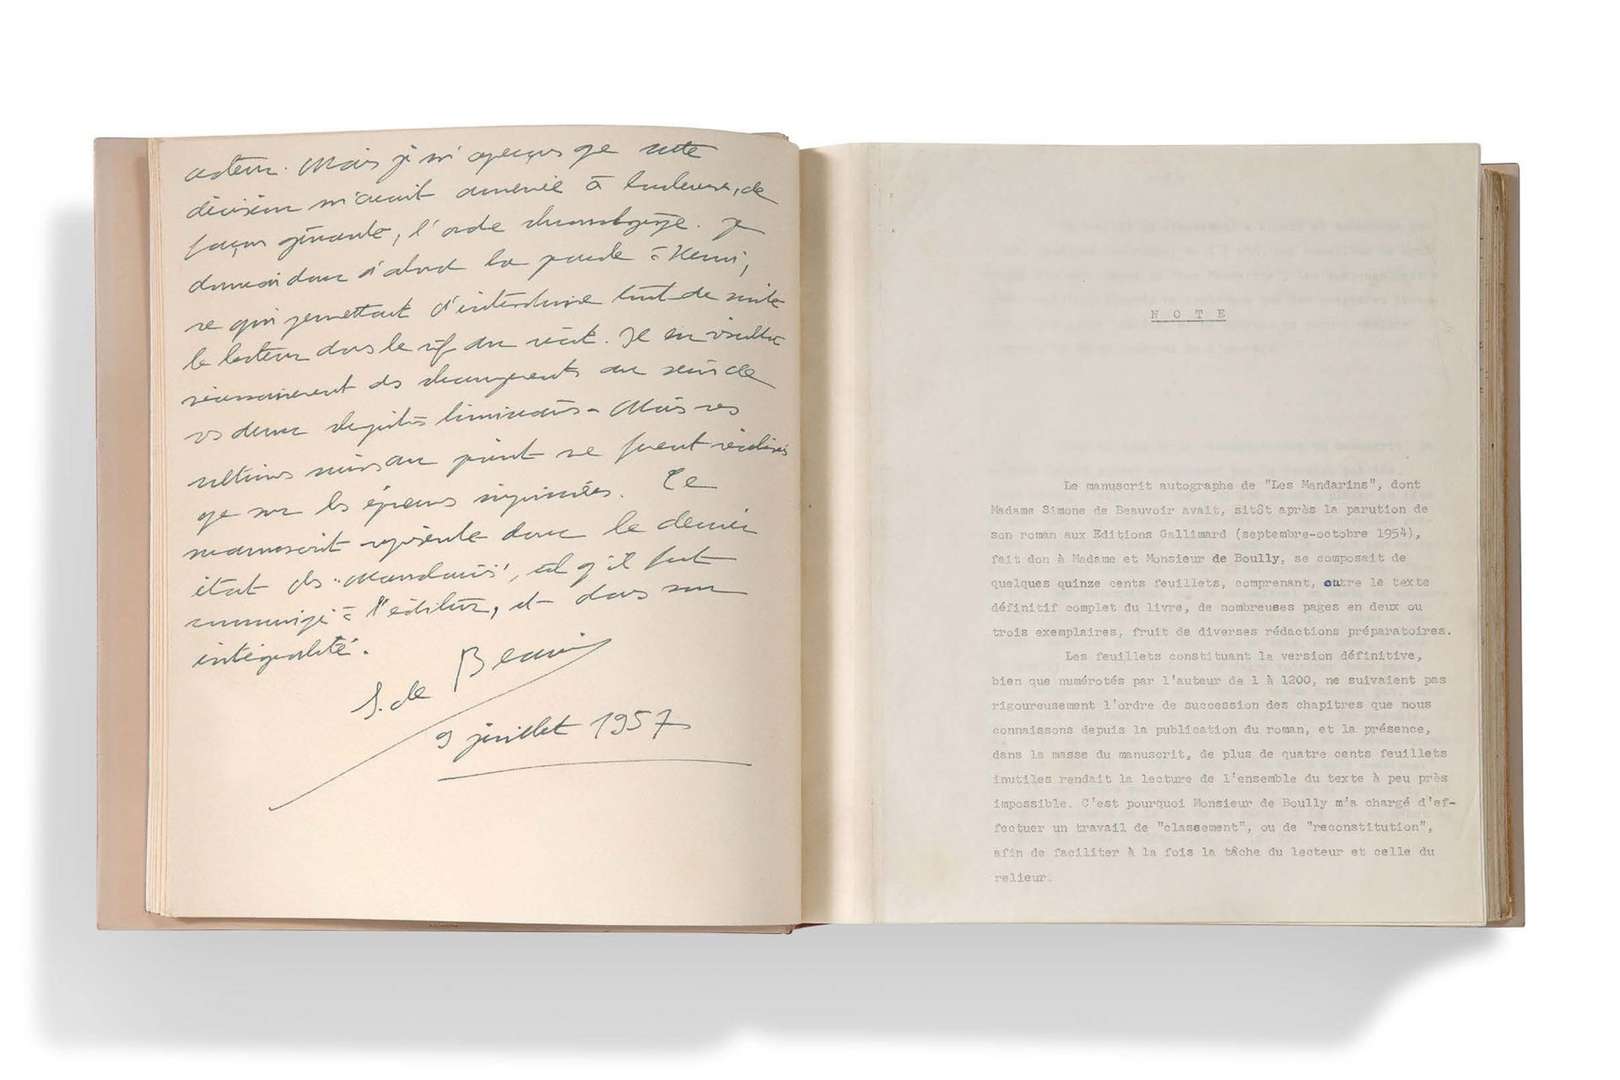 acteur. Mais je m'aperçus que cette
décision m'avait amenée à bouleverser, de
façon gênante, l'ordre chronologique. Je
donnai donc d'abord la parole à Henri,
ce qui permettait d'introduire tout de suite
le lecteur dans le vif du récit. Il en résulta
nécessairement des changements au sein de
ces deux chapitres liminaires. Mais ces
ultimes mises au point ne furent réalisées
que sur les épreuves imprimées. Ce
manuscrit représente donc le dernier
état des "Mandarins", tel qu'il fut
communiqué à l'éditeur, et dans son
intégralité.
S. de Beauvoir
9 juillet 1957
NOTE
Le manuscrit autographe de "Les Mandarins", dont
Madame Simone de Beauvoir avait, sitôt après la parution de
son roman aux Editions Gallimard (septembre-octobre 1954),
fait don à Madame et Monsieur de Boully, se composait de
quelques quinze cents feuillets, comprenant, outre le texte
définitif complet du livre, de nombreuses pages en deux ou
trois exemplaires, fruit de diverses rédactions préparatoires.
Les feuillets constituant la version définitive,
bien que numérotés par l'auteur de 1 à 1200, ne suivaient pas
rigoureusement l'ordre de succession des chapitres que nous
connaissons depuis la publication du roman, et la présence,
dans la masse du manuscrit, de plus de quatre cents feuillets
inutiles rendait la lecture de l'ensemble du texte à peu près
impossible. C'est pourquoi Monsieur de Boully m'a chargé d'ef-
fectuer un travail de "classement", ou de "reconstitution",
afin de faciliter à la fois la tâche du lecteur et celle du
relieur.